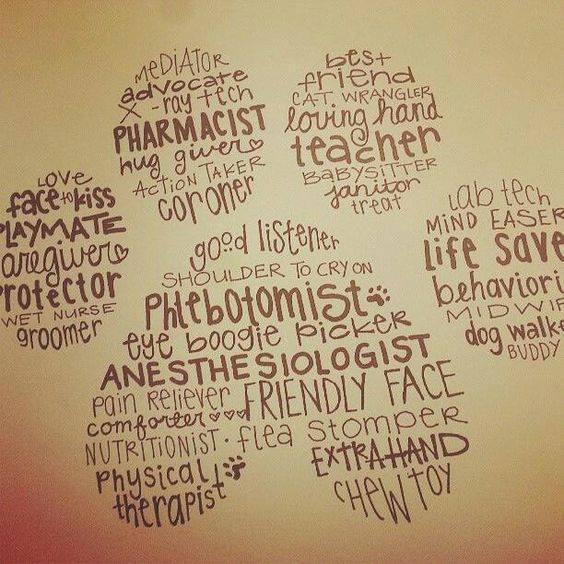 LOVE
face to kiss
PLAYMATE
aregiver
Protector
WET NURSE
groomer
MEDIATOR
advocate
X-ray tech
PHARMACIST
hug giver
ACTION TAKER
coroner
best
friend
CAT WRANGLER
loving hand
teacher
BABYSITTER
janitor
treat
lab tech
MIND EASER
Life Save
behaviori
MIDWIF
dog walke
BUDDY
good listener
SHOULDER TO CRY ON
Phlebotomist
eye boogie picker
ANESTHESIOLOGIST
pain reliever FRIENDLY FACE
comforter
NUTRITIONIST · flea stomper
physical EXTRA HAND
therapist CHEW TOY